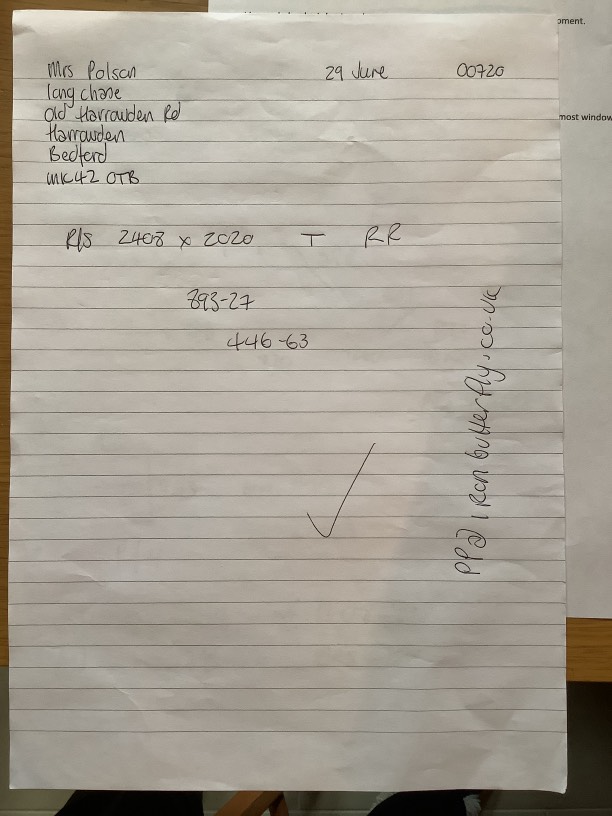 Mrs Polson 29 June 00720
long chase
Old Harrowden Rd
Harrowden
Bedford
MK42 0TB
R/S 2408 x 2020 T RR
893-27
446-63
PP@ironbutterfly.co.uk
oment.
most window